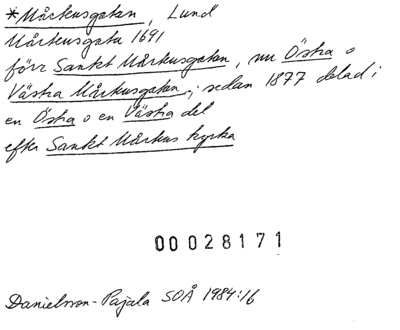 *Mårkusgatan, Lund
Mårkusgata 1691
förr Sankt Mårkusgatan, nu Östra o
Västra Mårkusgatan; sedan 1877 delad i
en Östra o en Västra del
efter Sankt Mårkus kyrka
00028171
Danielsson-Pajala SOÅ 1984:16